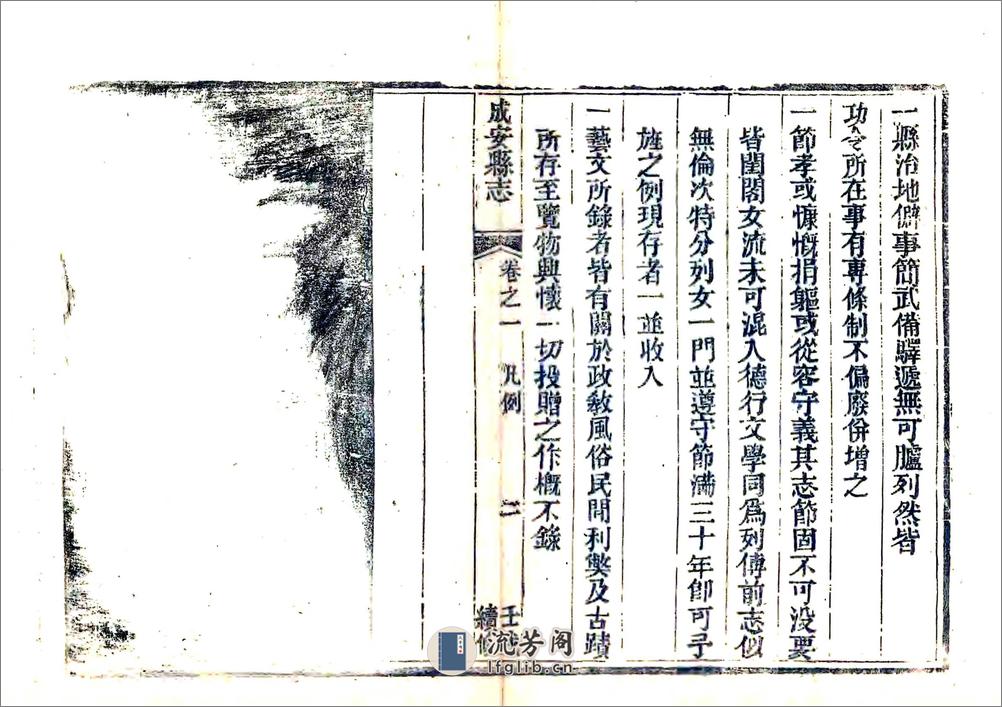 一縣治地僻事簡武備驛遞無可臚列然皆
功令所在事有專條制不偏廢併增之
一節孝或慷慨捐軀或從容守義其志節固不可没要
皆閨閣女流未可混入德行文學同爲列傳前志似
無倫次特分列女一門並遵守節滿三十年卽可予
旌之例現存者一並收入
一藝文所錄者皆有關於政教風俗民間利獘及古蹟
所存至覽物興懷一切投贈之作概不錄
成安縣志
卷之一
凡例
二
壬
續修
流芳阁
lfglib.cn